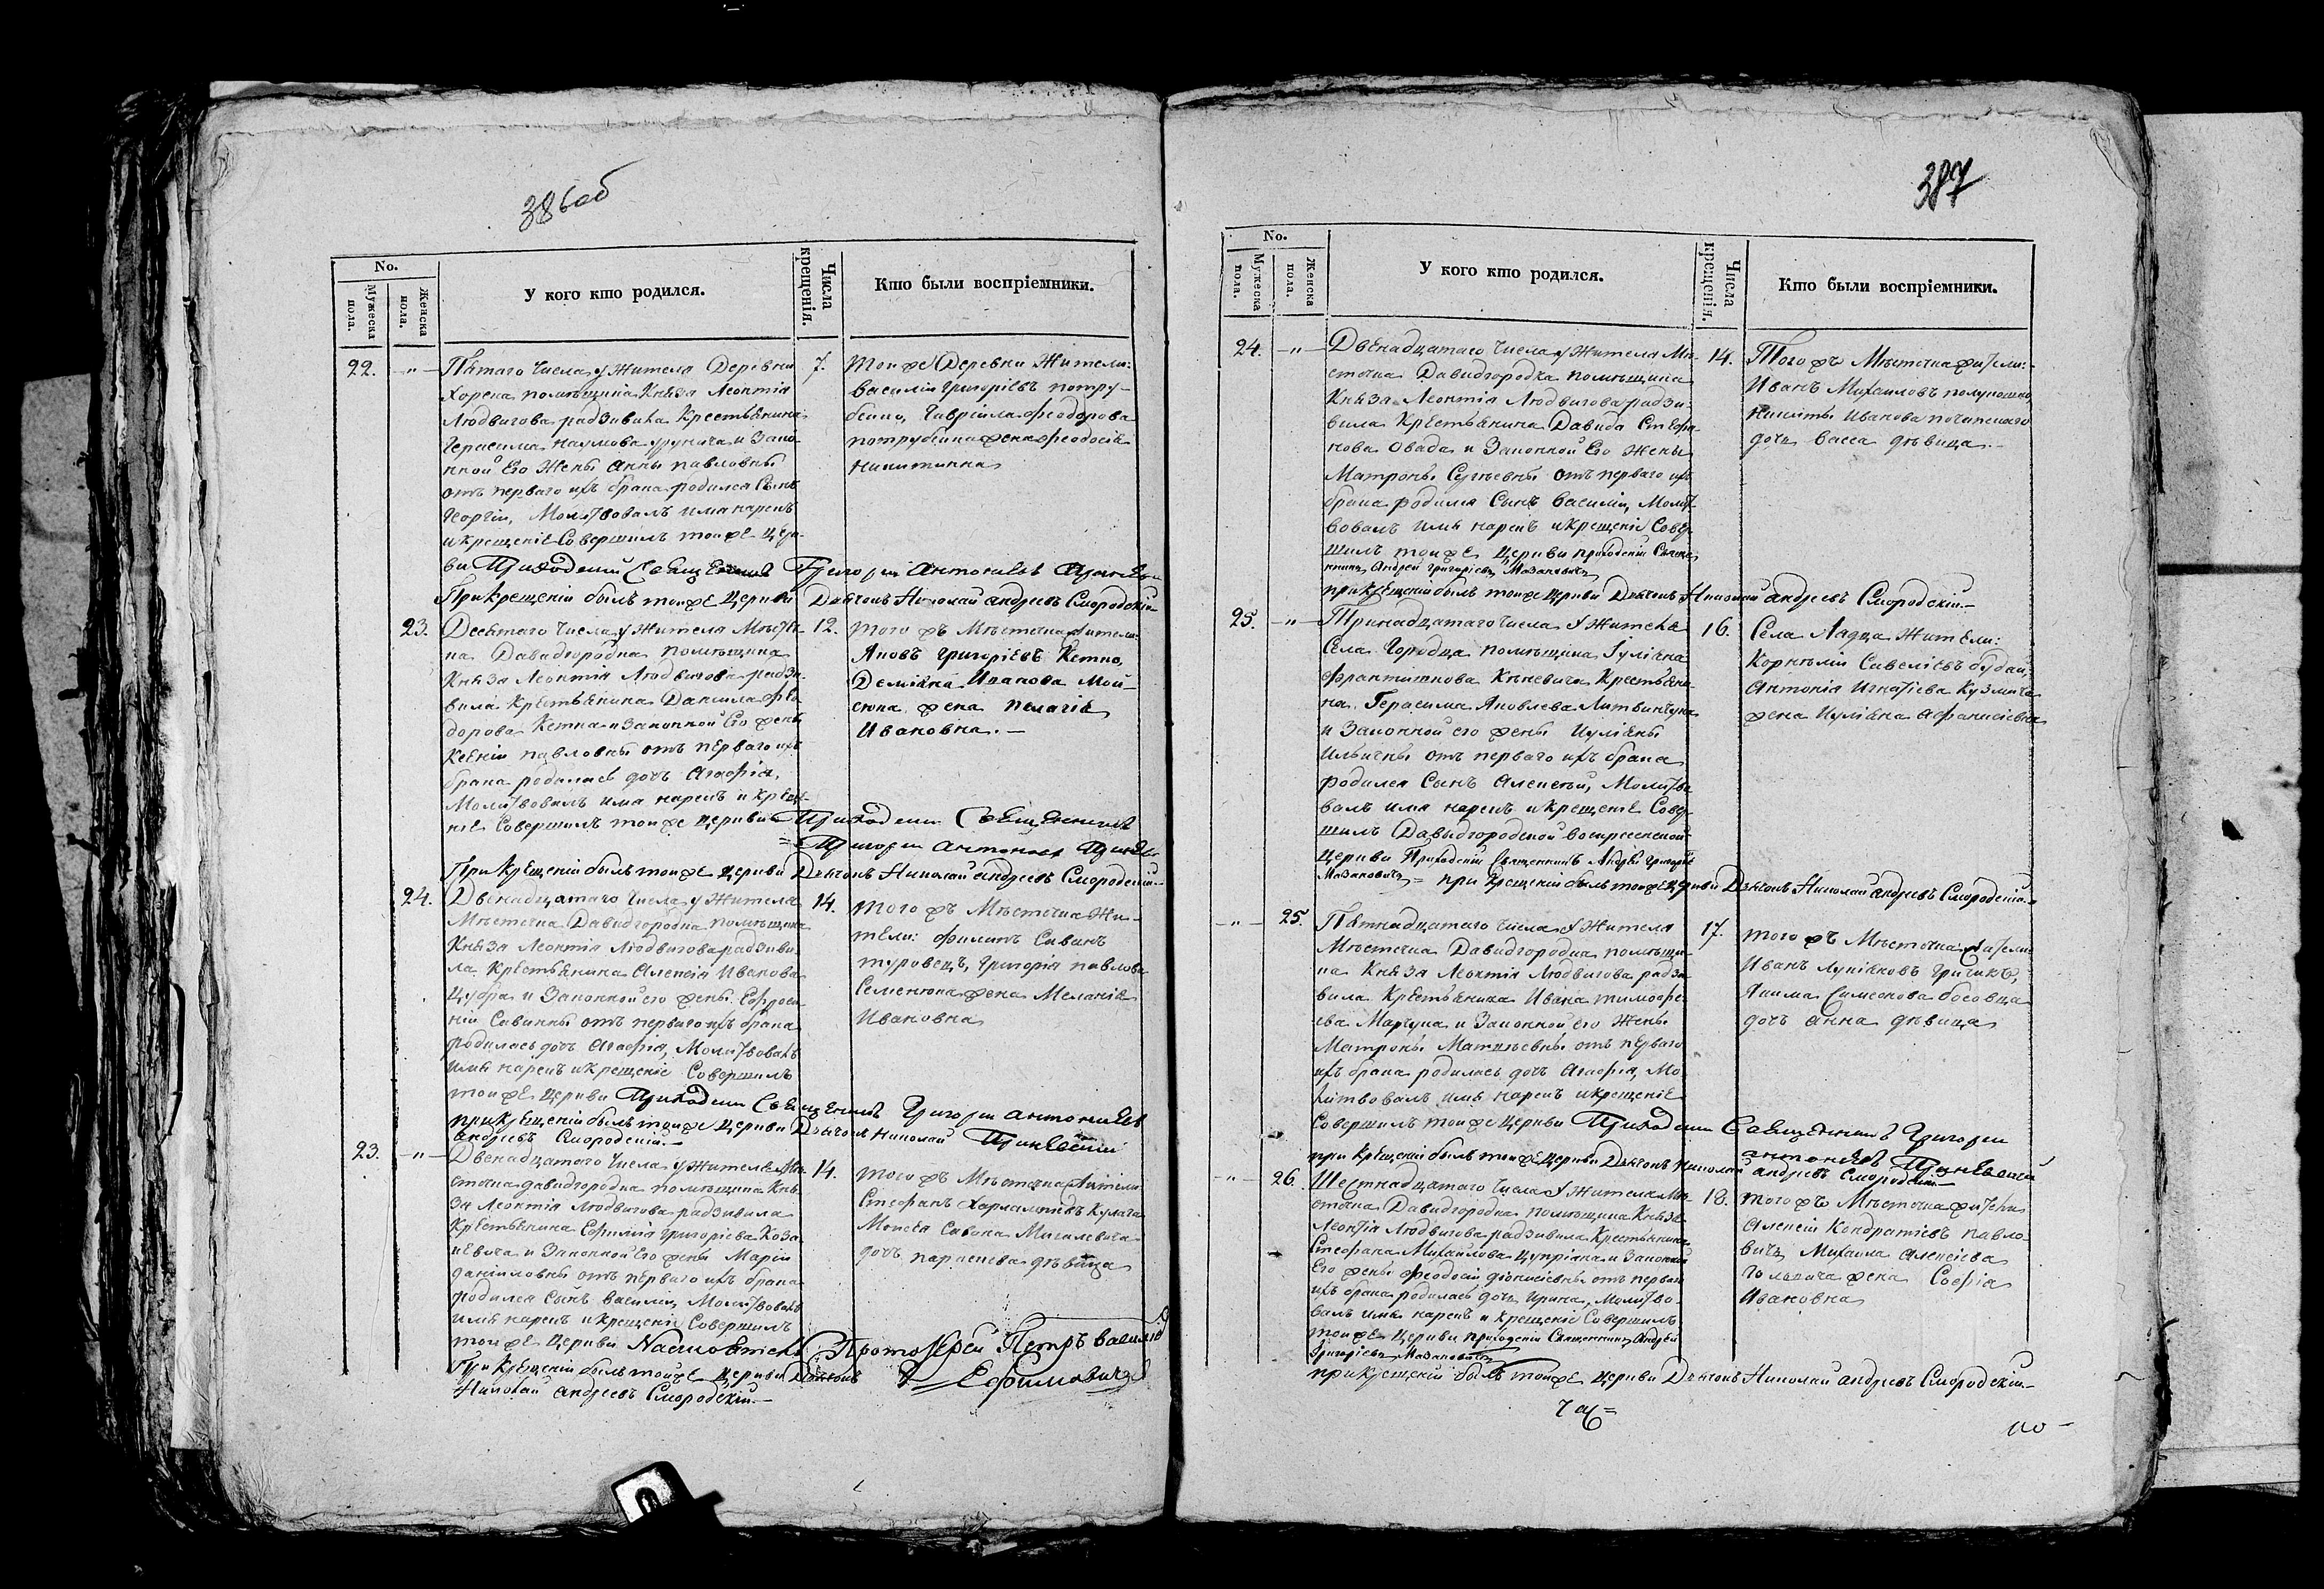 386 об
No.
Мужеска пола.
Женска пола.
У кого кто родился.
Числа крещенія.
Кто были воспріемники.
22. -"- Пятаго числа у жителя деревни
Хорска помѣщика Князя Леонтія
Людвигова радзивила Крестьянина
Герасима наумова и Зако-
нной Его Жены Анны павловны
отъ перваго ихъ брака родился Сынъ
Георгій, Молитвовалъ имя нарекъ
и крещеніе Совершилъ тойже Церк-
ви Приходскій Священникъ Григорій Антоніевъ
При крещеніи былъ тойже Церкви Дьячокъ Николай андреевъ Смородскій.-
7. Тойже Деревни Жители:
Василій Григоріевъ потру-
бейко, Гавріила феодорова
потрубейка жена феодосія
никитична
23. Десятаго числа у Жителя Мѣстеч-
ка Давидгородка помѣщика
Князя Леонтія Людвигова радзи-
вила Крестьянина Даніила фео-
дорова Кетка и Законной Его жены
Ксеніи павловны отъ перваго ихъ
брака родилась дочь Агафія,
Молитвовалъ имя нарекъ и креще-
ніе Совершилъ тойже Церкви Приходскій Священникъ
Григорій антоніевъ
При Крещеніи былъ тойже Церкви Дьячокъ Николай андреевъ Смородскій.-
12. того жъ Мѣстечка жители:
Яковъ Григоріевъ Кетко,
Деміяна Иванова Мой-
сюка жена пелагія
Ивановна.-
24. Двенадцатаго числа у жителя
Мѣстечка Давидгородка помѣщика
Князя Леонтія Людвигова радзиви-
ла Крестьянина Алексія Иванова
Цубра и Законной его жены Ефроси-
ніи Савинны отъ перваго ихъ брака
родилась дочь Агафія, Молитвовалъ
имя нарекъ и крещеніе Совершилъ
тойже Церкви Приходскій Священникъ Григорій антоніевъ
при крещеніи былъ тойже Церкви Дьячокъ Николай
андреевъ Смородскій.-
14. того жъ Мѣстечка Жи-
тели: филипъ Савинъ
туровецъ, Григорія павлова
Семенюка жена Меланія
Ивановна
23. -"- Двенадцатаго числа у жителя Мѣ-
стечка давидгородка помѣщика Кня-
зя Леонтія Людвигова радзивила
Крестьянина Ефимія Григоріева Коза-
чевича и Законной Его жены Маріи
даніиловны отъ перваго ихъ брака
родился Сынъ Василій, Молитвовалъ
имя нарекъ и крещеніе Совершилъ
тойже Церкви Настоятель Протоіерей Петръ Василіевъ
Ефимовичъ
При Крещеніи былъ тойже Церкви Дьячокъ
Николай андреевъ Смородскій.-
14. того жъ Мѣстечка жители
Стефанъ Харлампіевъ Кулага
Моисея Савина Мигалевича
дочь параскева дѣвица
387
No.
Мужеска пола.
Женска пола.
У кого кто родился.
Числа крещенія.
Кто были воспріемники.
24. -"- Двенадцатаго числа у Жителя Мѣ-
стечка Давидгородка помѣщика
Князя Леонтія Людвигова радзи-
вила Крестьянина Давида Стефа-
нова Овада и Законной Его Жены
Матроны Сергѣевны отъ перваго ихъ
брака родился Сынъ Василій, Молит-
вовалъ имя нарекъ и крещеніе Совер-
шилъ тойже Церкви приходскій Свяще-
нникъ Андрей Григоріевъ Мазановичъ
при крещеніи былъ тойже Церкви Дьячокъ Николай андреевъ Смородскій.-
14. Того жъ Мѣстечка жители:
Иванъ Михаиловъ полуношко
Никиты Иванова
дочь Васса дѣвица.-
25. -"- Тринадцатаго числа у Жителя
Села Городца помѣщика Іуліяна
франтишкова Кѣневича Крестьяни-
на Герасима Яковлева Литвинчука
и Законной его жены Иуліяны
Ильичны отъ перваго ихъ брака
родился Сынъ Алексѣй, Молитво-
валъ имя нарекъ и крещеніе Совер-
шилъ Давыдгородской воскресенской
Церкви Приходскій Священникъ Андрей Григоріевъ
Мазановичъ = при Крещеніи былъ тойже церкви Дьячокъ Николай андреевъ Смородскій.-
16. Села Ладца Жители:
Корнилій Савеліевъ будай,
Антонія Игнатіева Кузмича
жена Иуліяна Афанасіевна
-"- 25. Пятнадцатаго числа у Жителя
Мѣстечка Давидгородка помѣщи-
ка Князя Леонтія Людвигова радзи-
вила Крестьянина Ивана тимофе-
ева Марчука и Законной его Жены
Матроны Матвѣевны отъ перваго
ихъ брака родилась дочь Агафія, Мо-
литвовалъ имя нарекъ и крещеніе
Совершилъ тойже Церкви Приходскій Священникъ Григорій
антоніевъ
при крещеніи былъ тойже Церкви Дьячокъ Николай андреевъ Смородскій.-
17. того жъ Мѣстечка жители
Иванъ Лукіяновъ Гричикъ,
Якима Симеонова босовца
дочь анна дѣвица
-"- 26. Шестнадцатаго числа у Жителя Мѣ-
стечка Давидгородка помѣщика Князя
Леонтія Людвигова радзивила Крестьянина
Стефана Михайлова Цупріяна и Законной
Его жены феодосіи діонисіевны отъ перваго
ихъ брака родилась дочь Ирина, Молитво-
валъ имя нарекъ и крещеніе Совершилъ
тойже Церкви приходскій Священникъ Андрей
Григоріевъ Мазановичъ
при крещеніи былъ тойже Церкви Дьячокъ Николай андреевъ Смородскій.-
18. того жъ Мѣстечка жители
Алексій Кондратіевъ павло-
вичъ, Михаила алексіева
жена Софія
Ивановна